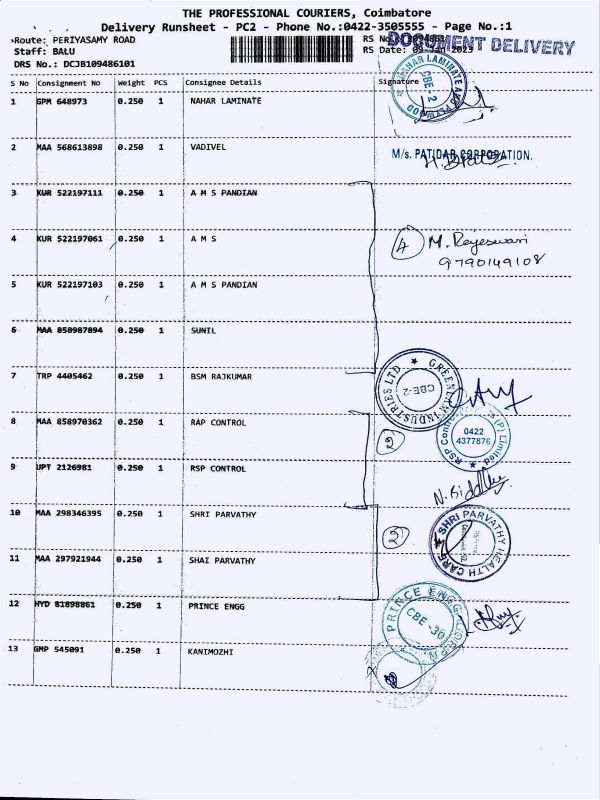 THE PROFESSIONAL COURIERS, Coimbatore
Delivery Runsheet - PC2 - Phone No.:0422-3505555 - Page No.:1
Route: PERIYASAMY ROAD
RS No.:
DOCUMENT DELIVERY
Staff: BALU
RS Date: 09-Jan-2023
DRS No.: DCJB109486101
S No Consignment No Weight PCS Consignee Details Signature
1 GPM 648973 0.250 1 NAHAR LAMINATE
NAHAR LAMINATE AND PLYWOOD
CBE-2
2 MAA 568613898 0.250 1 VADIVEL
M/s. PATIDAR CORPORATION.
3 KUR 522197111 0.250 1 A M S PANDIAN
4 KUR 522197061 0.250 1 A M S
4 M. Rajeswari
9790149108
5 KUR 522197103 0.250 1 A M S PANDIAN
6 MAA 858987894 0.250 1 SUNIL
7 TRP 4405462 0.250 1 BSM RAJKUMAR
GREENLAM INDUSTRIES LTD
CBE-2
8 MAA 858970362 0.250 1 RAP CONTROL
RSP (P) Limited
0422
4377876
9 UPT 2126981 0.250 1 RSP CONTROL
10 MAA 298346395 0.250 1 SHRI PARVATHY
SHRI PARVATHY HEALTH CARE
11 MAA 297921944 0.250 1 SHAI PARVATHY
12 HYD 81898861 0.250 1 PRINCE ENGG
PRINCE ENGG
CBE-30
13 GMP 545091 0.250 1 KANIMOZHI